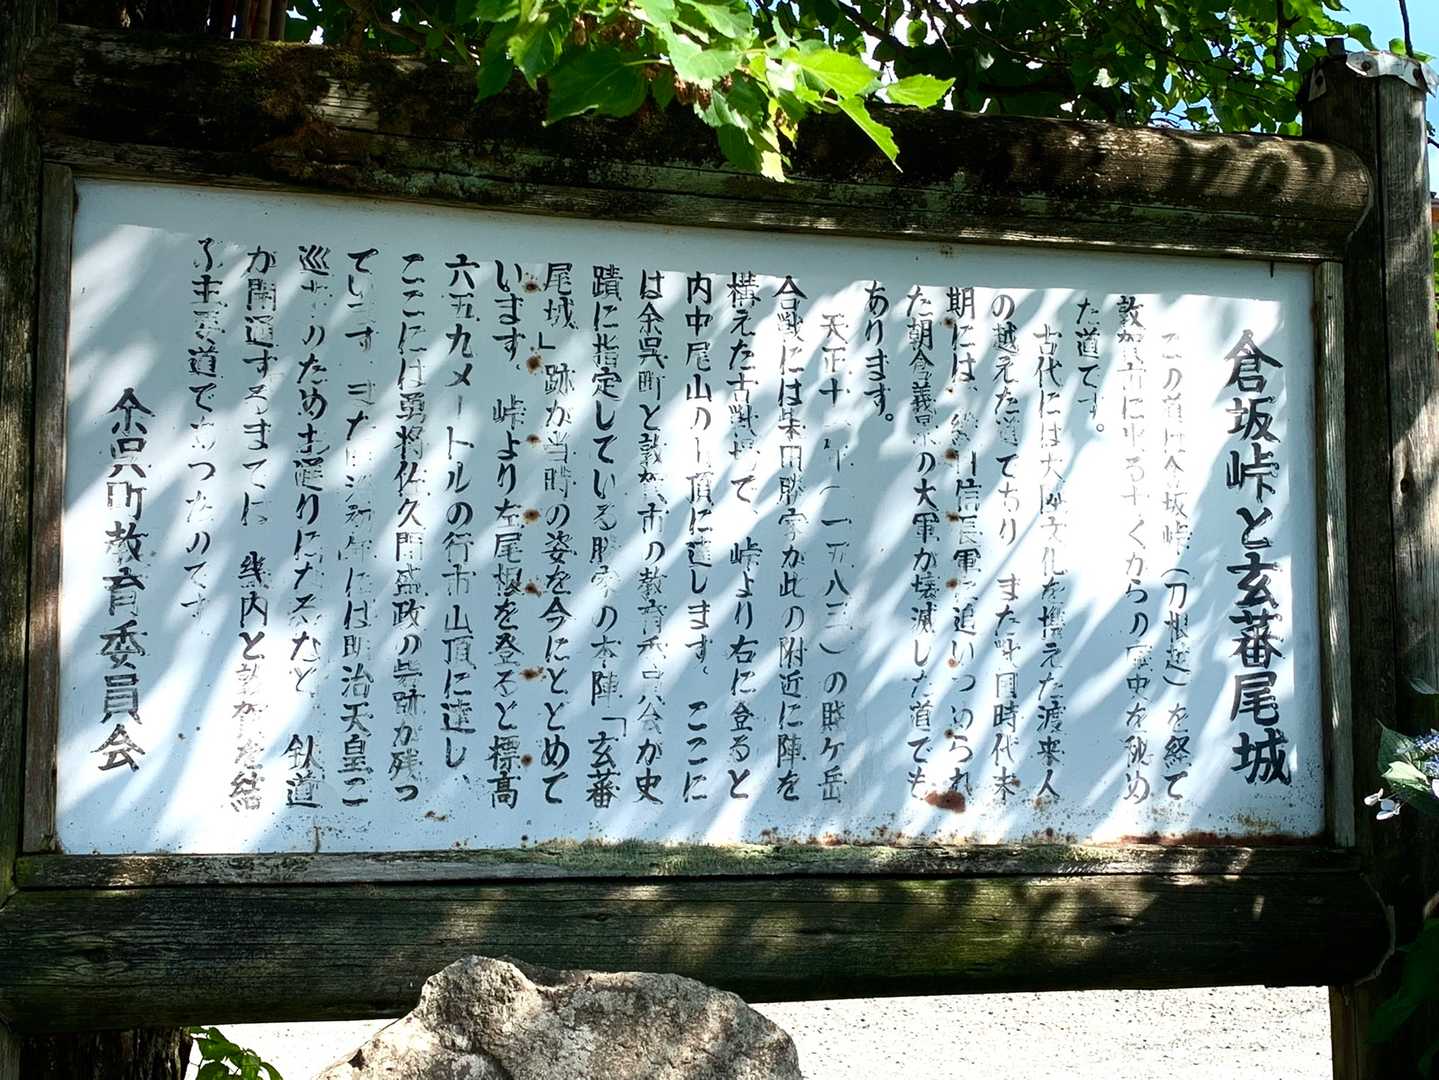 倉坂峠と玄蕃尾城
この道は倉坂峠(刀根越)を経て
敦賀市に至る古くからの歴史を秘め
た道です。
古代には大陸文化を携えた渡来人
の越えた道であり また戦国時代末
期には 織田信長軍に追いつめられ
た朝倉義景の大軍が壊滅した道でも
あります。
天正十一年(一五八三)の賤ヶ岳
合戦には柴田勝家が此の附近に陣を
構えた古戦場で 峠より右に登ると
内中尾山の山頂に達します。ここに
は余呉町と敦賀市の教育委員会が史
蹟に指定している勝家の本陣「玄蕃
尾城」跡が当時の姿を今にとどめて
います。峠より左尾根を登ると標高
六五九メートルの行市山頂に達し、
ここには勇将佐久間盛政の砦跡が残っ
ています。また 明治初年には明治天皇ご
巡幸のためお通りになるなど 鉄道
が開通するまでは 畿内と敦賀を結
ぶ主要道であったのです
余呉町教育委員会